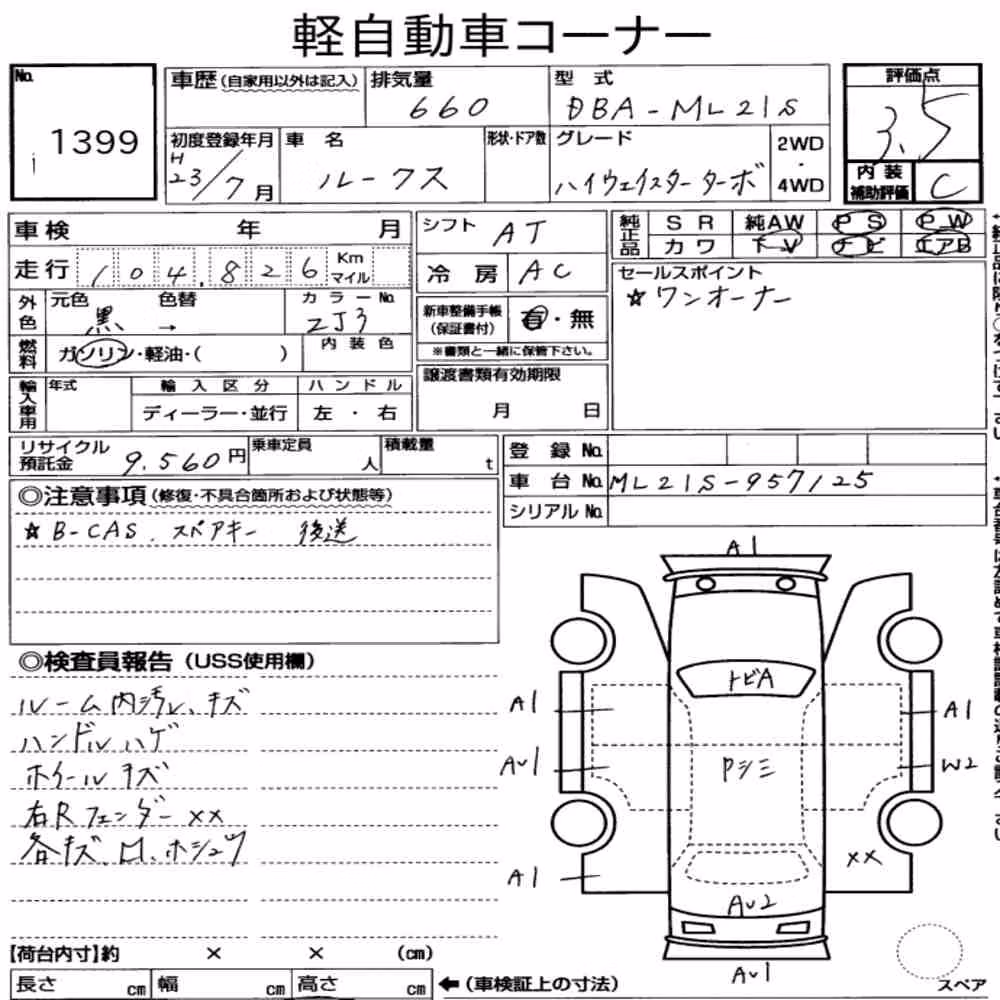 軽自動車コーナー
No. 1399
車歴(自家用以外は記入) 排気量 660 型式 DBA-ML21S
初度登録年月 H23/7月 車名 ルークス 形状・ドア数 グレード ハイウェイスターターボ 2WD・4WD
評価点 3.5
内装補助評価 C
車検 年 月
走行 104,826 Km マイル
外色 元色 黒 色替 → カラーNo. ZJ3
燃料 ガソリン・軽油・( ) 内装色
輸入車用 年式 輸入区分 ディーラー・並行 ハンドル 左・右
シフト AT
冷房 AC
新車整備手帳(保証書付) 有・無
※書類と一緒に保管下さい。
譲渡書類有効期限
月 日
純正品 SR 純AW PS PW
カワ TV ナビ エアB
セールスポイント
☆ワンオーナー
リサイクル預託金 9,560円 乗車定員 人 積載量 t
登録No.
車台No. ML21S-957125
シリアルNo.
◎注意事項(修復・不具合箇所および状態等)
☆B-CAS、スペアキー 後送
◎検査員報告(USS使用欄)
ルーム内汚レ、キズ
ハンドルハゲ
ホイールキズ
右Rフェンダー××
各キズ、凹、ホシュウ
A1
トビA
A1 A1
Pシミ
AU1 W2
××
A1
AU2
AU1
スペア
【荷台内寸】約 × × (cm)
長さ cm 幅 cm 高さ cm ←(車検証上の寸法)